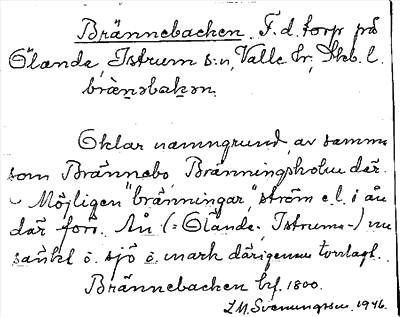 Brännebacken. F. d. torp på
Ölanda, Istrum s:n, Valle hr, Skb. l.
brànəbakən.
Oklar namngrund, av samma
som Brännebo, Bränningsholm där.
Möjligen "bränningar", ström e.l. i ån
där förr. Ån (=Ölanda-, Istrums-) nu
sänkt o. sjö o. mark därigenom torrlagt.
Brännebacken brf. 1800.
L. M. Svenungsson. 1946.